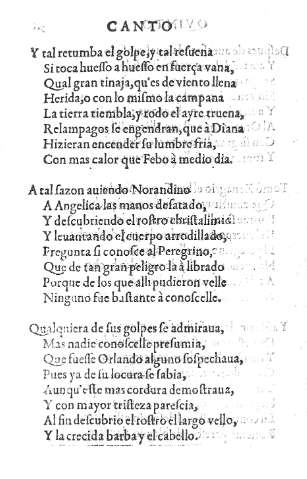 CANTO
Y tal retumba el golpe, y tal resuena
Si toca huesso a huesso en fuerça vana,
Qual gran tinaja, qu'es de viento llena
Herida, o con lo mismo la campana
La tierra tiembla, y todo el ayre truena,
Relampagos se engendran, que à Diana
Hizieran encender su lumbre fria,
Con mas calor que Febo à medio dia.
A tal sazon auiendo Norandino
A Angelica las manos desatado,
Y descubriendo el rostro christalino
Y leuantando el cuerpo arrodillado,
Pregunta si conosce al Peregrino,
Que de tan gran peligro la à librado
Porque de los que alli pudieron velle
Ninguno fue bastante à conoscelle.
Qualquiera de sus golpes se admiraua,
Mas nadie conoscelle presumia,
Que fuesse Orlando alguno sospechaua,
Pues ya de su locura se sabia,
Aunqu'este mas cordura demostraua,
Y con mayor tristeza parescia,
Al fin descubrio el rostro el largo vello,
Y la crecida barba y el cabello.